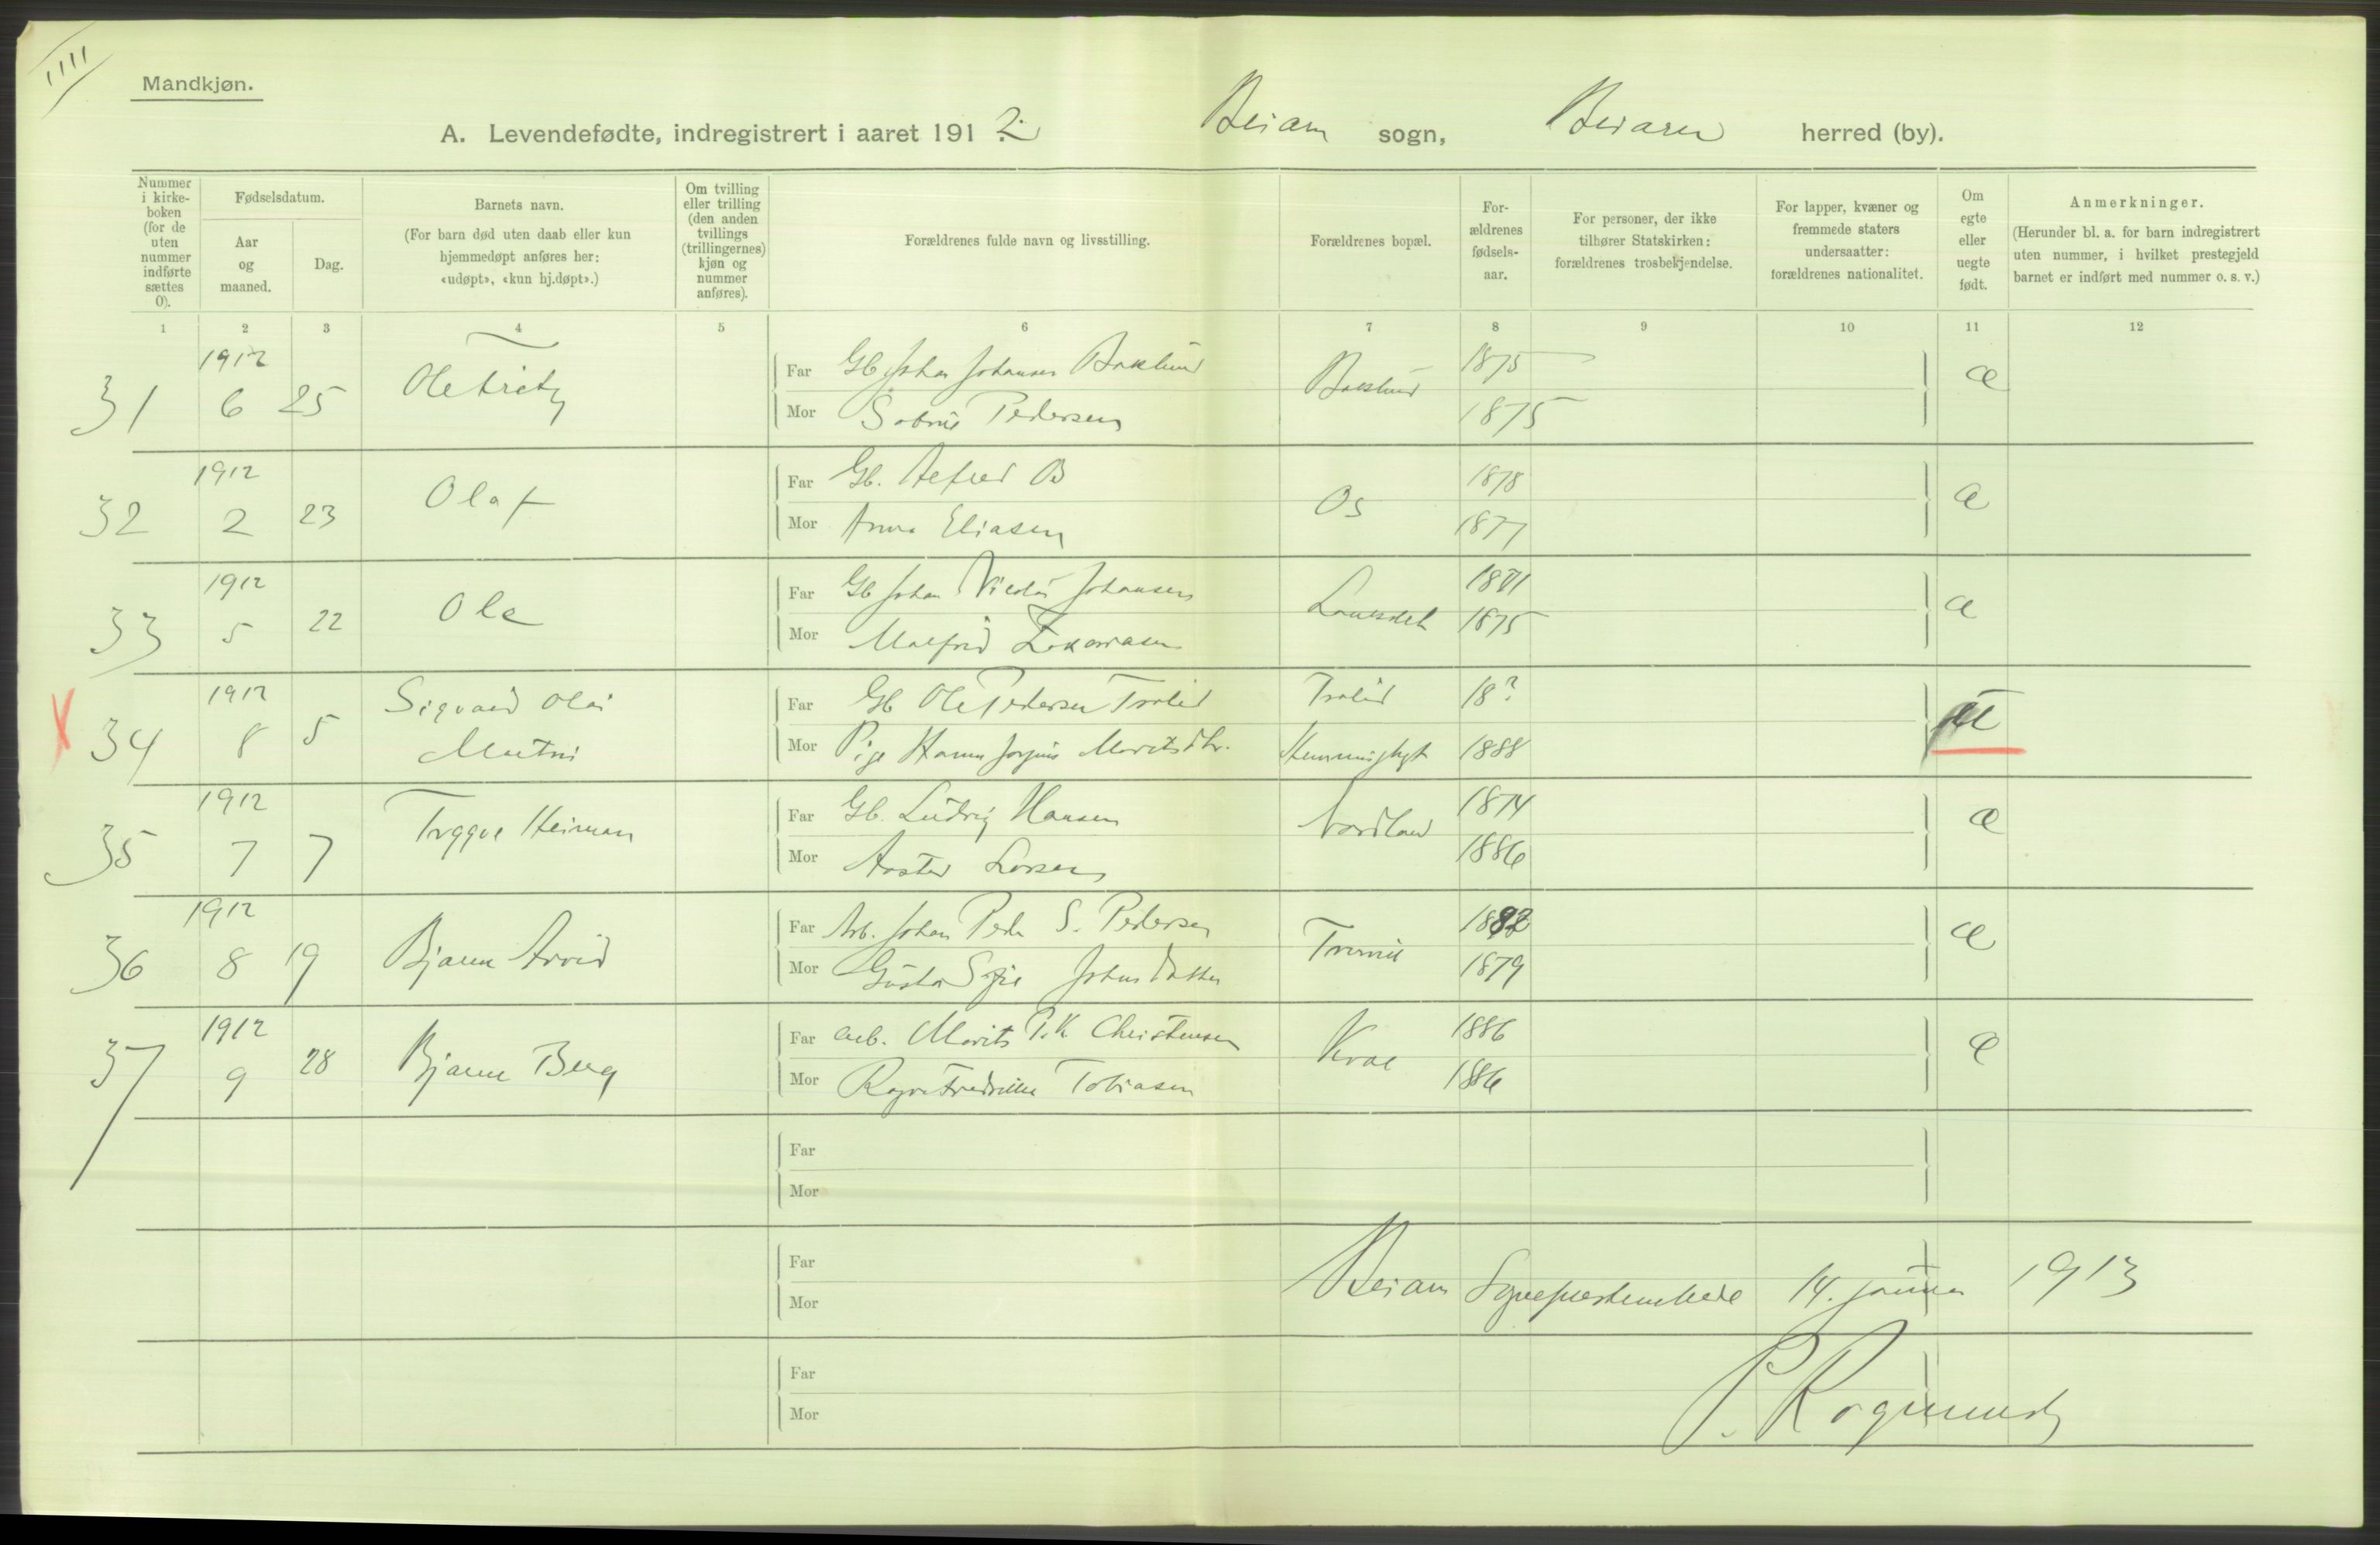 Mandkjøn.
A. Levendefødte, indregistrert i aaret 1912 Beiarn sogn, Beiaren herred (by).
Nummer i kirke-boken (for de uten nummer indførte sættes 0).
Fødselsdatum.
Aar og maaned.
Dag.
Barnets navn.
(For barn død uten daab eller kun hjemmedøpt anføres her: «udøpt», «kun hj.døpt».)
Om tvilling eller trilling (den anden tvillings (trillingernes) kjøn og nummer anføres).
Forældrenes fulde navn og livsstilling.
Forældrenes bopæl.
For-ældrenes fødsels-aar.
For personer, der ikke tilhører Statskirken: forældrenes trosbekjendelse.
For lapper, kvæner og fremmede staters undersaatter: forældrenes nationalitet.
Om egte eller uegte født.
Anmerkninger.
(Herunder bl. a. for barn indregistrert uten nummer, i hvilket prestegjeld barnet er indført med nummer o. s. v.)
1 2 3 4 5 6 7 8 9 10 11 12
1912 Far Gb. Johan Johansen 1875
31 6 25 Mor Pedersen 1875 Æ
1912 Far Gb. B 1878
32 2 23 Olaf Mor Anna Eliasen Os 1877 Æ
1912 Far Gb Johan Johansen 1871
33 5 22 Ole Mor Malfrid Zakariasen 1875 Æ
1912 Sigvard Olai Far Gb Ole Pedersen Trolid Trolid 18?
34 8 5 Mor Pige Hanna Moritsdtr. 1888
1912 Far Gb. Ludvig Hansen 1874
35 7 7 Trygve Heiman Mor Larsen Nordland 1886 Æ
1912 Far Arb. Johan Peder S. Pedersen
36 8 19 Bjarne Arvid Mor Gusta Sofie Johns datter 1879 Æ
1912 Far arb. Morits P.K Christensen 1886
37 9 28 Bjarne Berg Mor Fredrikke Tobiasen 1886 Æ
Far
Mor
Far
Mor
Beiarn Sogneprestembede 14. januar 1913
Far
Mor